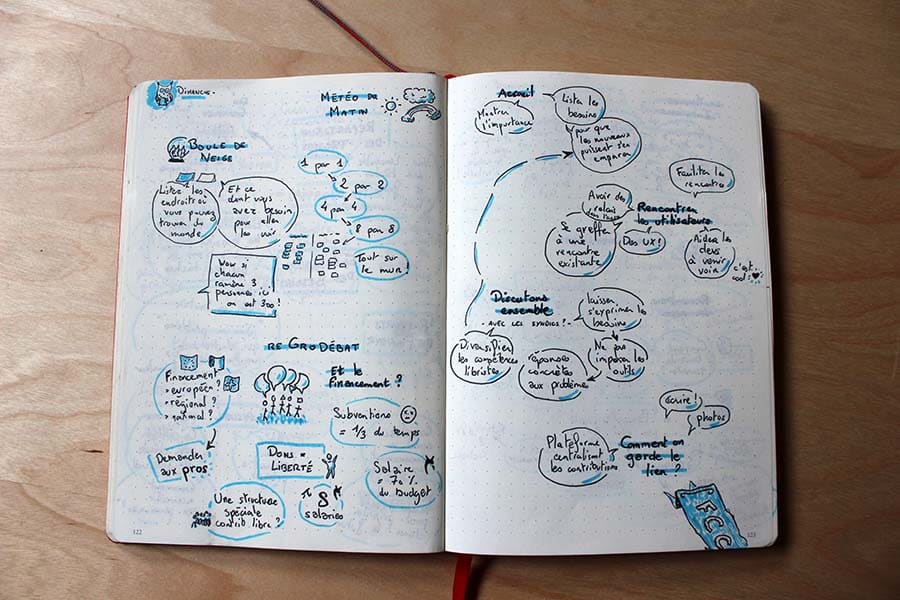 Dimanche.
Météo du
Matin
Boule de
Neige
Listez les
endroits où
vous pouvez
trouver du
monde
Et ce
dont vous
avez besoin
pour aller
les voir
1 par 1
2 par 2
4 par 4
8 par 8
Tout sur
le mur !
Wow si
chacun
ramène 3
personnes ici
on est 300 !
re GroDébat
Financement
européen ?
régional ?
national ?
Et le
financement ?
Subventions
= 1/3 du temps
Demander
aux pros
Dons =
Liberté
Salaire
= 70%
du budget
Une structure
spéciale
contrib. libre ?
8
salariés
122
Accueil
Montrer
l'importance
Lister les
besoins
pour que
les nouveaux
puissent s'en
emparer
Faciliter les
rencontres
Avoir des
relais
Rencontrer
les utilisateurs
Se greffer
à une
rencontre
existante
Des UX !
Aider les
devs
à venir
voir
c'est
cool !
Discutons
ensemble
- avec les syndics ? -
Laisser
s'exprimer les
besoins
Diversifier
les compétences
libristes
Ne pas
imposer les
outils
réponses
concrètes
aux problèmes
écrire !
photos
Plateforme
centralisant
les contributions
Comment on
garde le
lien ?
FCC
123